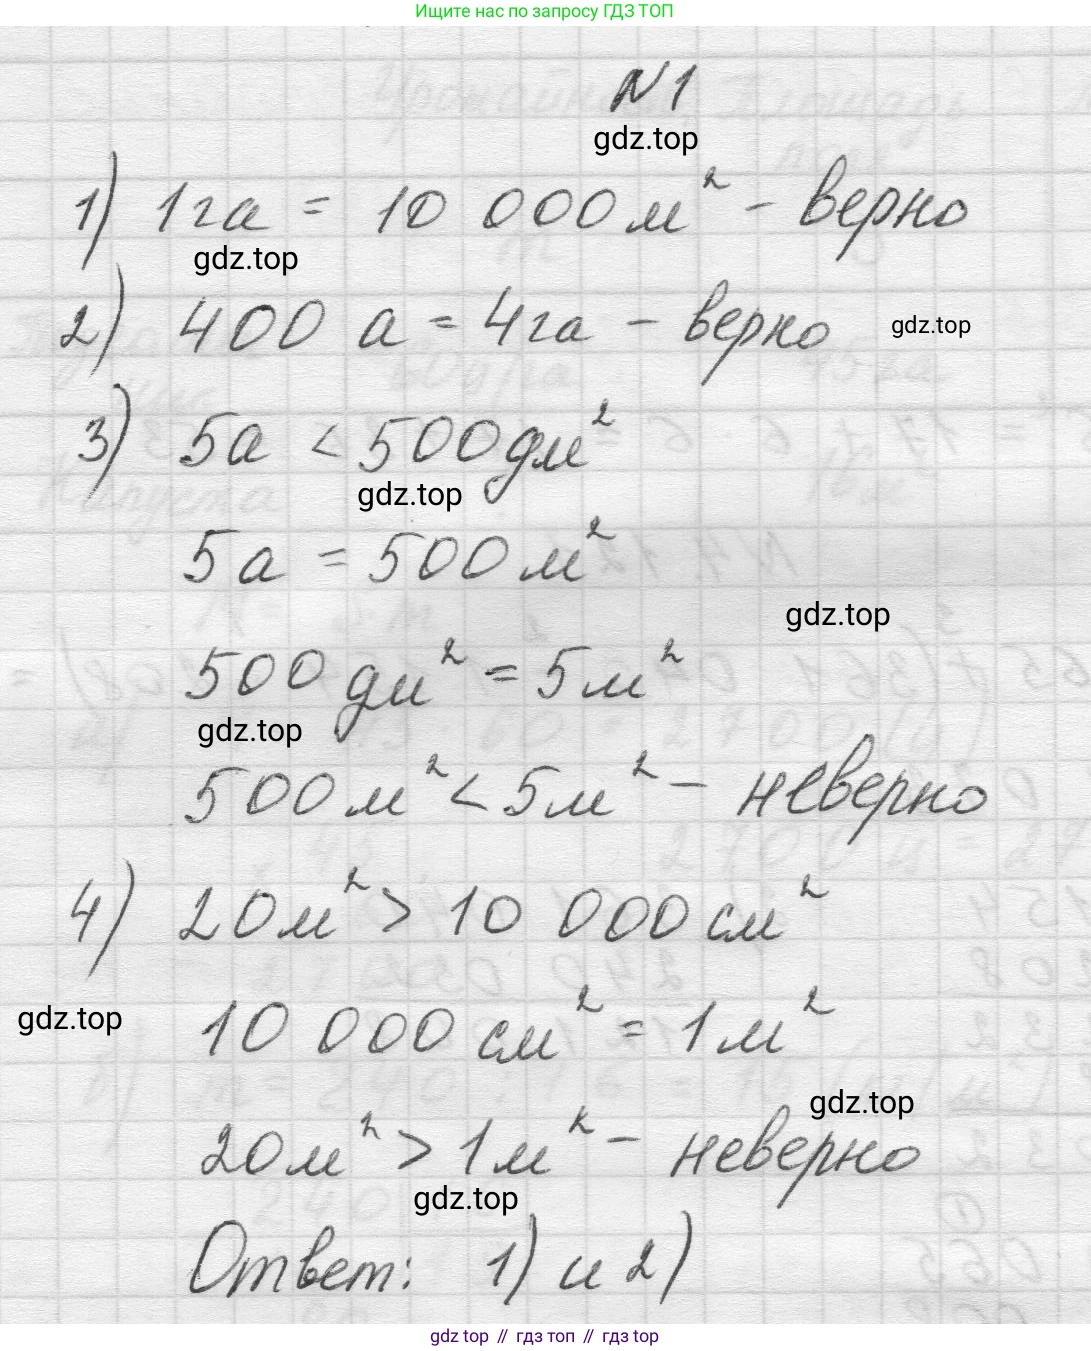 Ищите нас по запросу ГДЗ ТОП
N1
gdz.top
1) 1га = 10 000 м² - верно
gdz.top
2) 400 а = 4га - верно
gdz.top
3) 5а < 500 дм²
gdz.top
5а = 500 м²
gdz.top
500 дм² = 5 м²
gdz.top
500 м² < 5 м² - неверно
4) 20 м² > 10 000 см²
gdz.top
10 000 см² = 1 м²
gdz.top
20 м² > 1 м² - неверно
gdz.top
Ответ: 1) и 2)
gdz top // гдз топ // gdz top